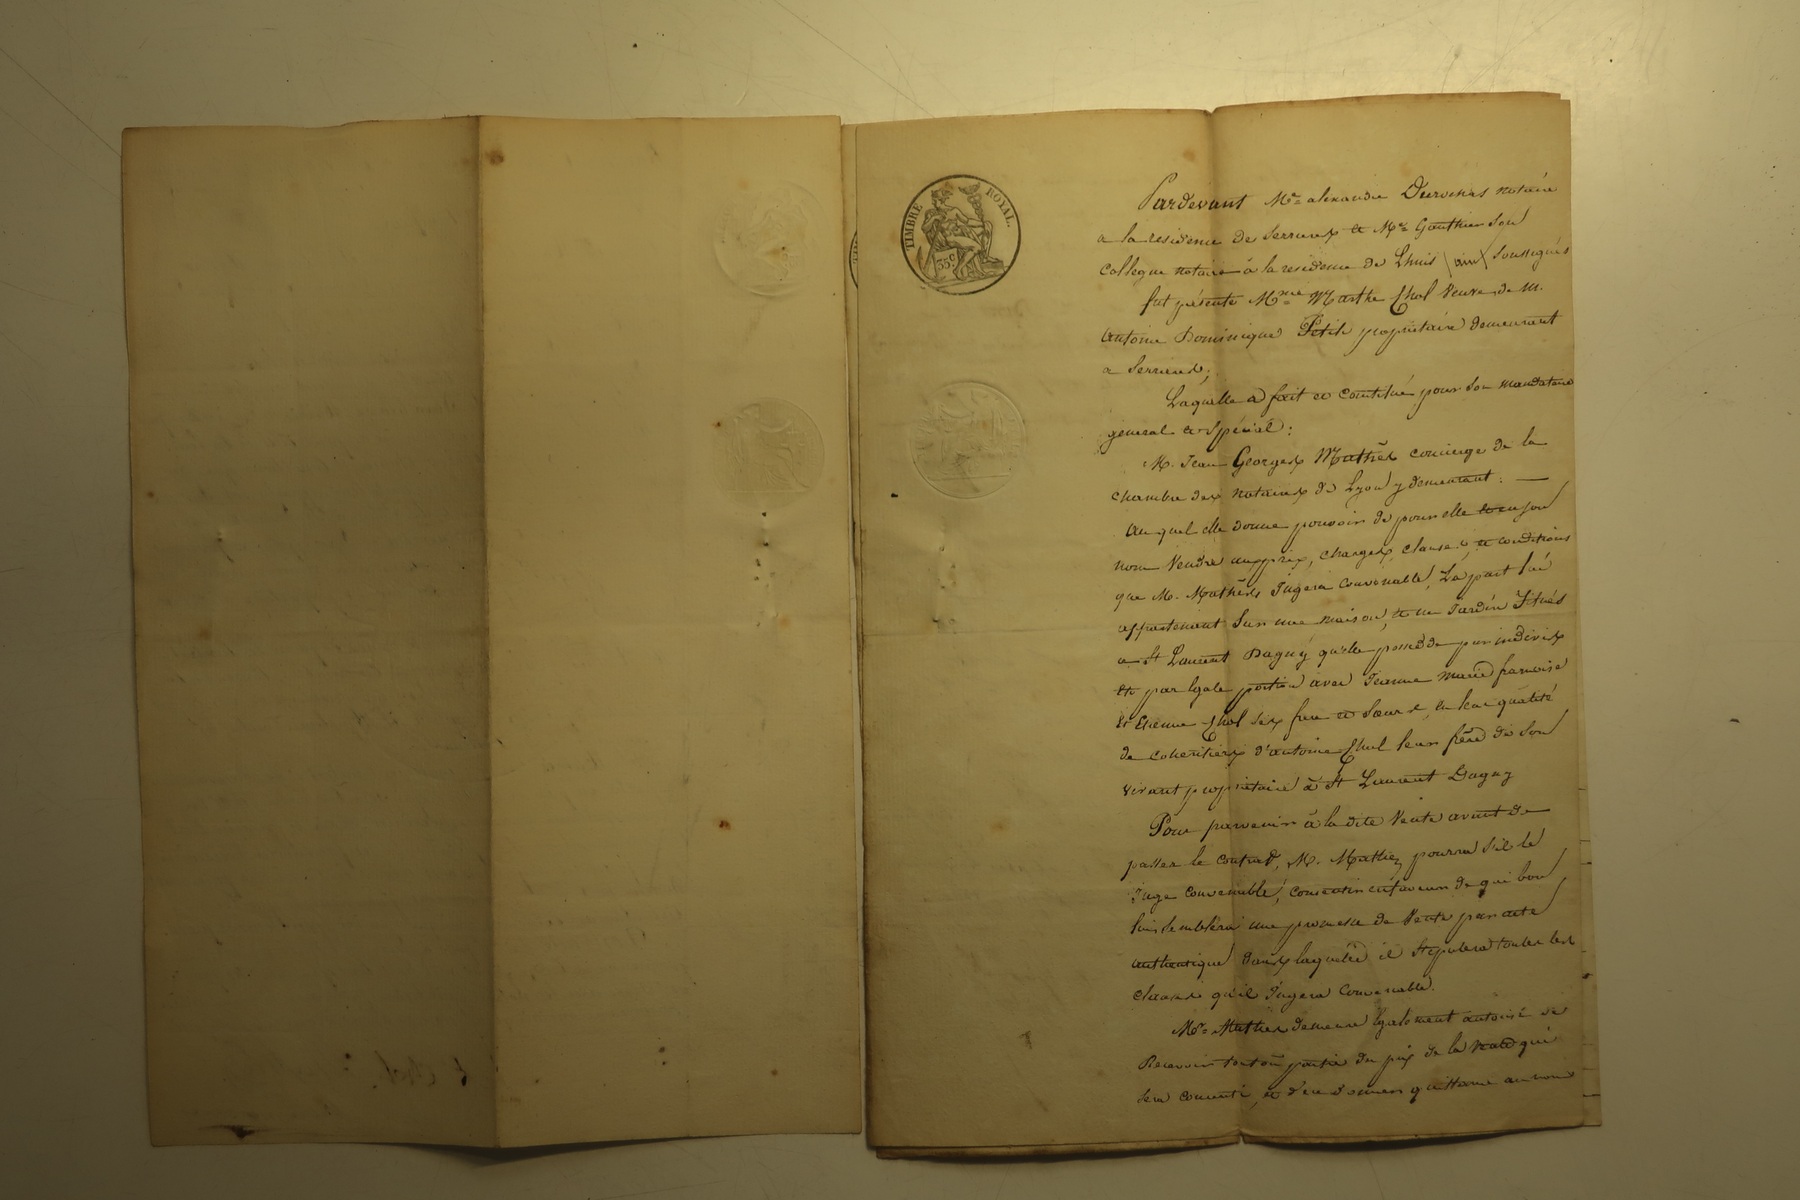 TIMBRE ROYAL
35 c
Pardevant Me alexandre notaire
a la residence de Serrieres et Me Gauthier son
collegue notaire à la residence de Lhuis (ain) soussignés
fut présente Mme Marthe Chol Veuve de M.
Antoine Dominique Petit propriétaire demeurant
a Serrieres;
Laquelle a fait et constitué pour son mandataire
géneral et spécial:
M. Jean Georges Mathés concierge de la
chambre des notaires de Lyon y demeurant.
Au quel elle donne pouvoir de pour elle et en son
nom Vendre aux prix, charges, clauses, et conditions
que M. Mathés Jugera convenable, La part lui
appartenant Sur une maison, et un Jardin Situés
a St Laurent Dagny qu'elle possède par indivis
et par Egale portion avec Jeanne Marie francoise
et Etienne Chol ses frere et sœurs, en leur qualité
de coheritiers d'antoine Chol leur frère de son
vivant propriétaire à St Laurent Dagny
Pour parvenir à la dite Vente avant de
passer le contrat, M. Mathés pourra s'il le
Juge convenable, consentir en faveur de qui bon
lui semblera une promesse de Vente par acte
authentique dans laquelle il stipulera toutes les
clauses qu'il Jugera Convenable.
Mr Mathés demeure Egalement autorisé de
Recevoir tout ou partie du prix de la Vente qui
sera convenü, et d'en donner quittance au nom